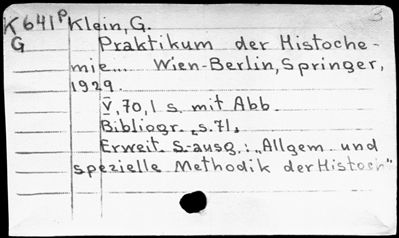 3
K641P Klein, G.
G Praktikum der Histoche-
mie... Wien-Berlin, Springer,
1929.
V, 70, 1 s. mit Abb.
Bibliogr. „s. 71„
Erweit. S.-ausg.: „Allgem. und
spezielle Methodik der Histoch"